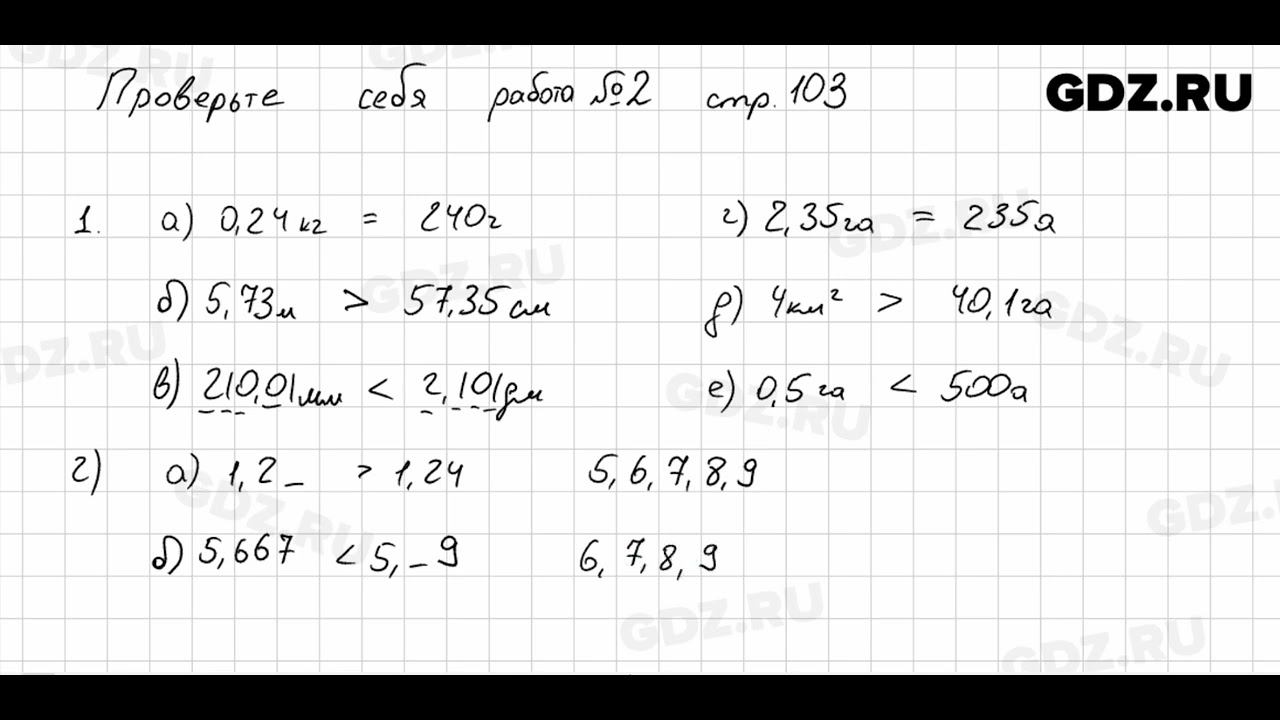 Проверьте себя работа №2 стр. 103
GDZ.RU
1. а) 0,24 кг = 240г
г) 2,35га = 235а
б) 5,73м > 57,35см
д) 4км² > 40,1га
в) 210,01мм < 2,101дм
е) 0,5га < 500а
2) а) 1,2_ > 1,24 5, 6, 7, 8, 9
б) 5,667 < 5,_9 6, 7, 8, 9